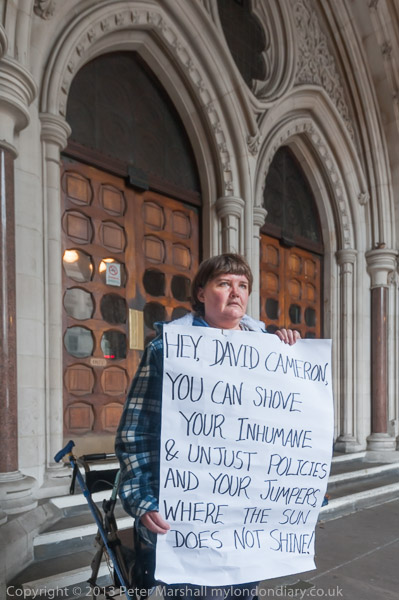 HEY, DAVID CAMERON,
YOU CAN SHOVE
YOUR INHUMANE
& UNJUST POLICIES
AND YOUR JUMPERS
WHERE THE SUN
DOES NOT SHINE!
Copyright © 2013 Peter Marshall mylondondiary.co.uk